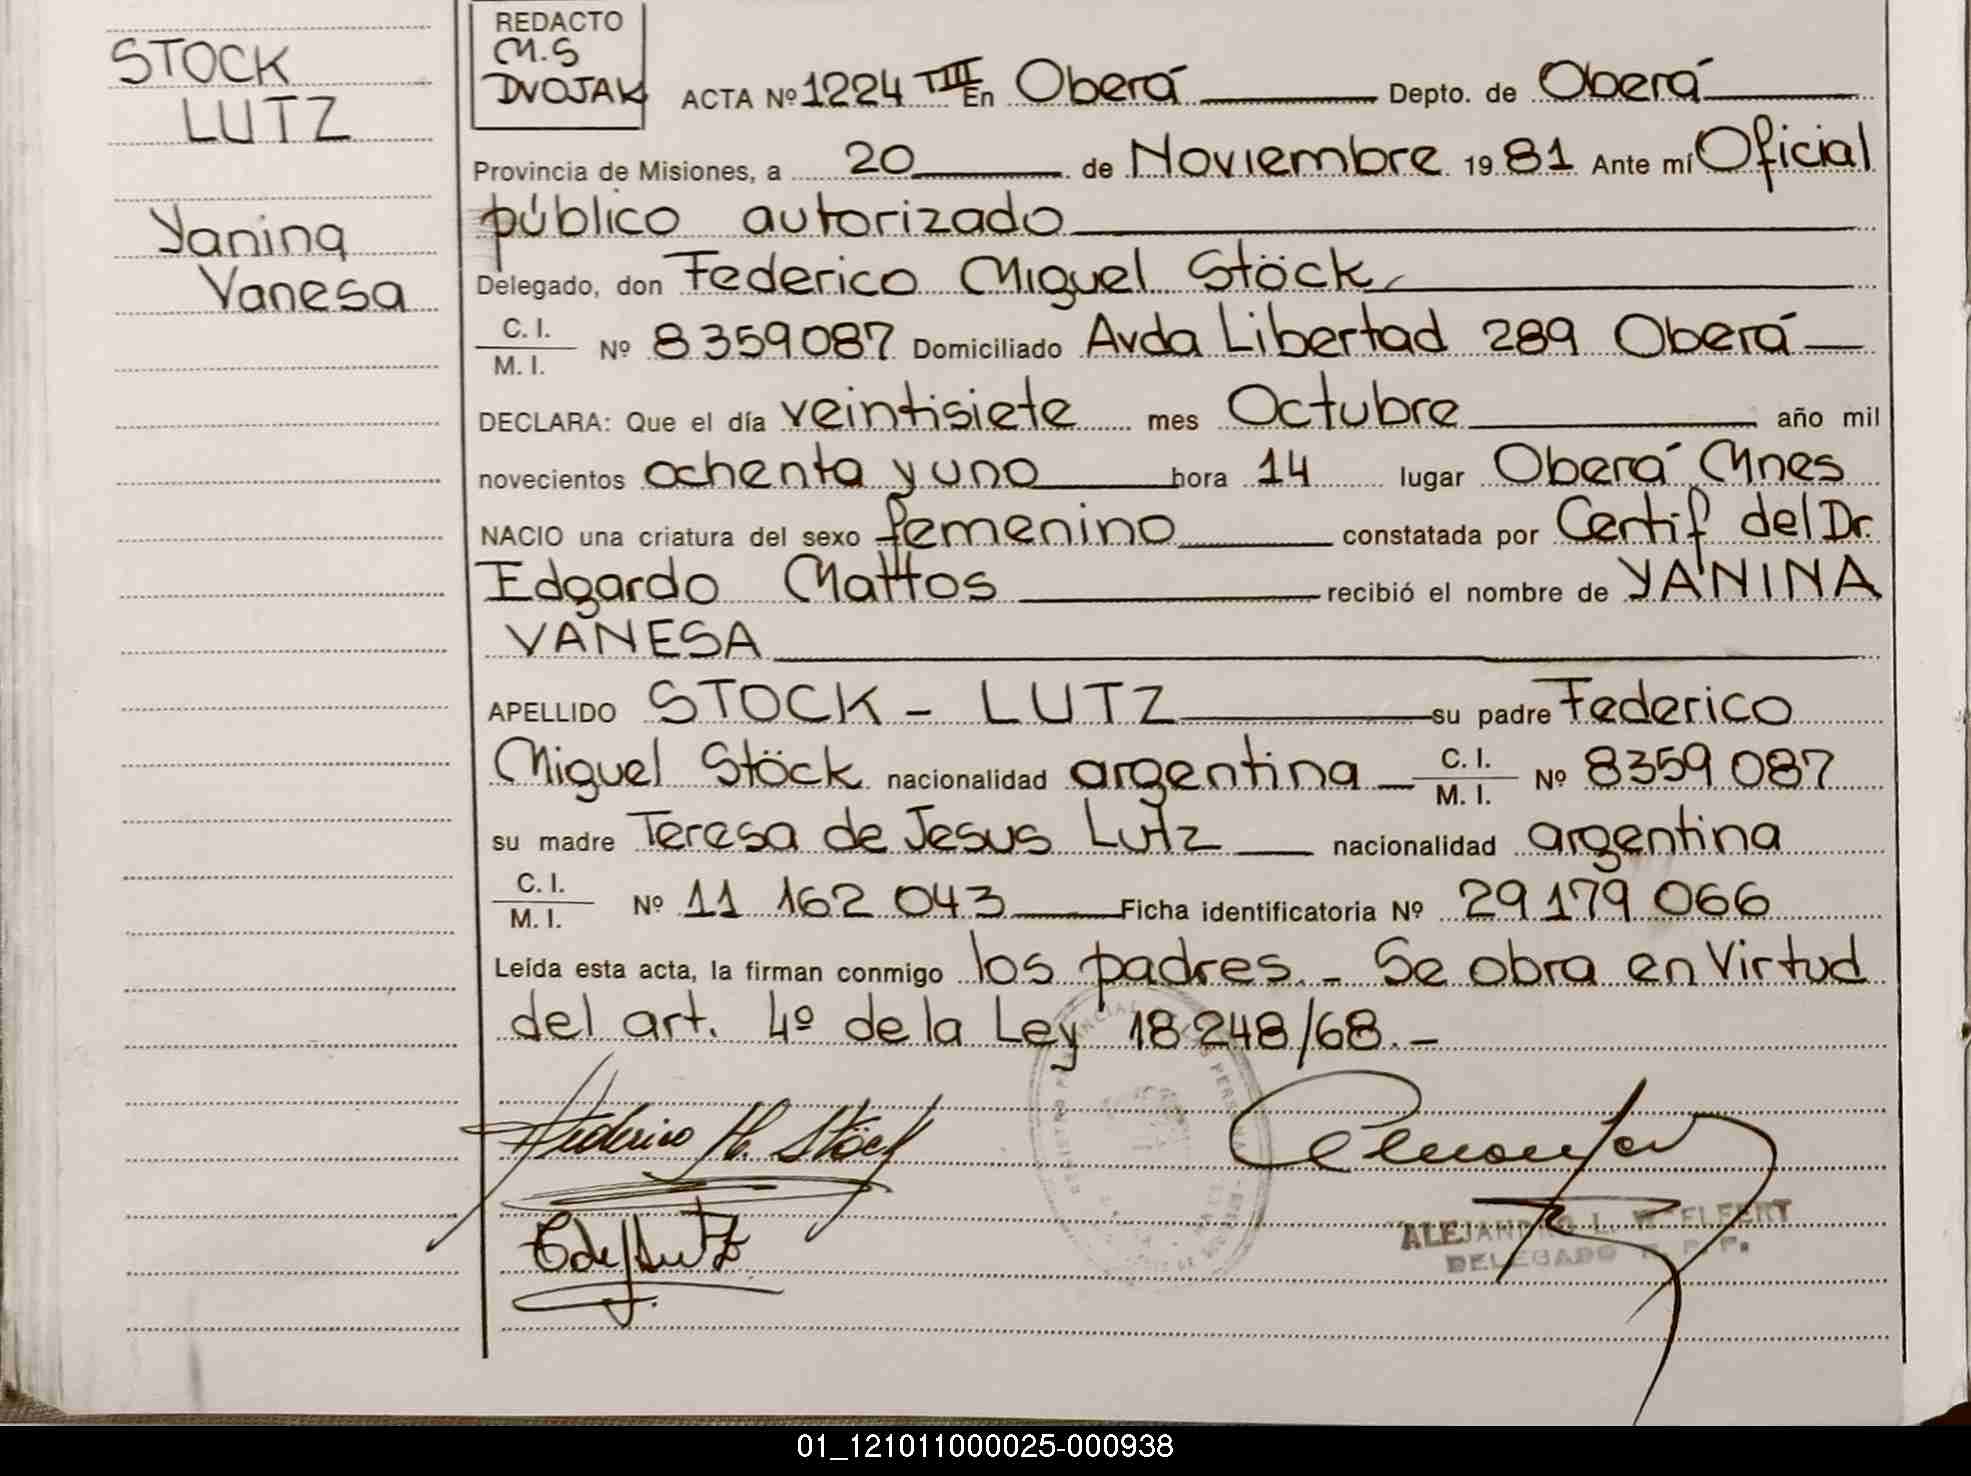 STOCK
LUTZ
Yanina
Vanesa
REDACTO
M.S
DVOJAK
ACTA Nº 1224 TIII En Oberá Depto. de Oberá
Provincia de Misiones, a 20 de Noviembre 1981 Ante mí Oficial
público autorizado
Delegado, don Federico Miguel Stöck
C. I.
M. I. Nº 8359087 Domiciliado Avda Libertad 289 Oberá
DECLARA: Que el día veintisiete mes Octubre año mil
novecientos ochenta y uno hora 14 lugar Oberá Mnes
NACIO una criatura del sexo femenino constatada por Certif del Dr.
Edgardo Mattos recibió el nombre de YANINA
VANESA
APELLIDO STOCK - LUTZ su padre Federico
Miguel Stöck nacionalidad argentina C. I. M. I. Nº 8359 087
su madre Teresa de Jesus Lutz nacionalidad argentina
C. I.
M. I. Nº 11 162 043 Ficha identificatoria Nº 29 179 066
Leída esta acta, la firman conmigo los padres. - Se obra en Virtud
del art. 4º de la Ley 18 248/68. -
Federico M. Stöck
T de J Lutz
ALEJANDRO L. W.
DELEGADO R. P. P.
01_121011000025-000938